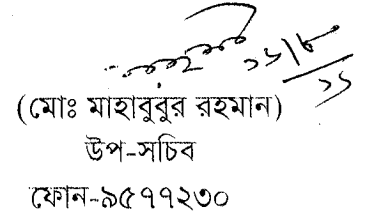 ১৬/৮/১১
(মোঃ মাহাবুবুর রহমান)
উপ-সচিব
ফোন-৯৫৭৭২৩০